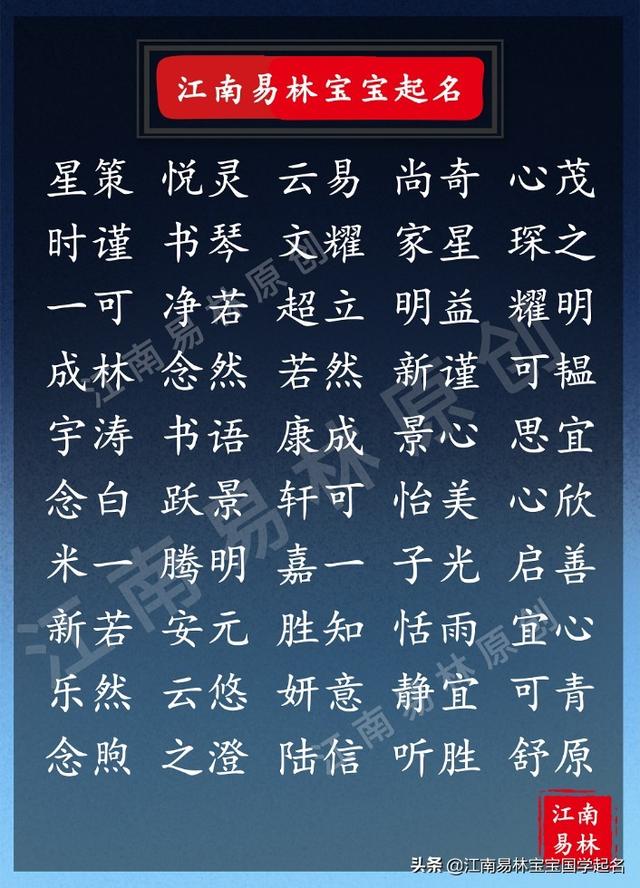 江南易林宝宝起名
星策 悦灵 云易 尚奇 心茂
时谨 书琴 文耀 家星 琛之
一可 净若 超立 明益 耀明
成林 念然 若然 新谨 可韫
宇涛 书语 康成 景心 思宜
念白 跃景 轩可 怡美 心欣
米一 腾明 嘉一 子光 启善
新若 安元 胜知 恬雨 宜心
乐然 云悠 妍意 静宜 可青
念煦 之澄 陆信 听胜 舒原
江南易林原创
江南易林原创
江南易林原创
江南
易林
头条 @江南易林宝宝国学起名